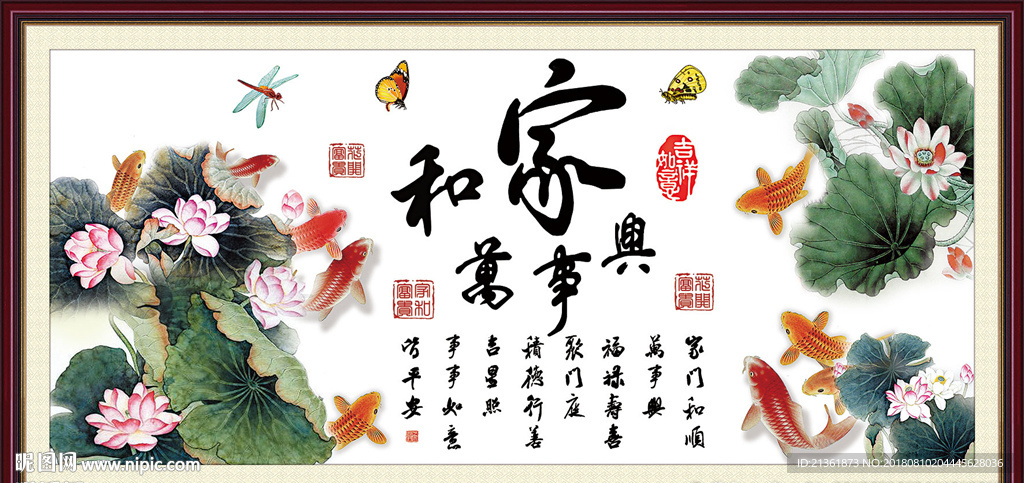 家和萬事興
吉祥如意
花開富貴
家和富貴
花開富貴
家门和順
萬事興
福禄壽喜
聚门庭
積德行善
吉星照
事事如意
皆平安
昵图网 www.nipic.com
ID:21361873 NO:20180810204445628036